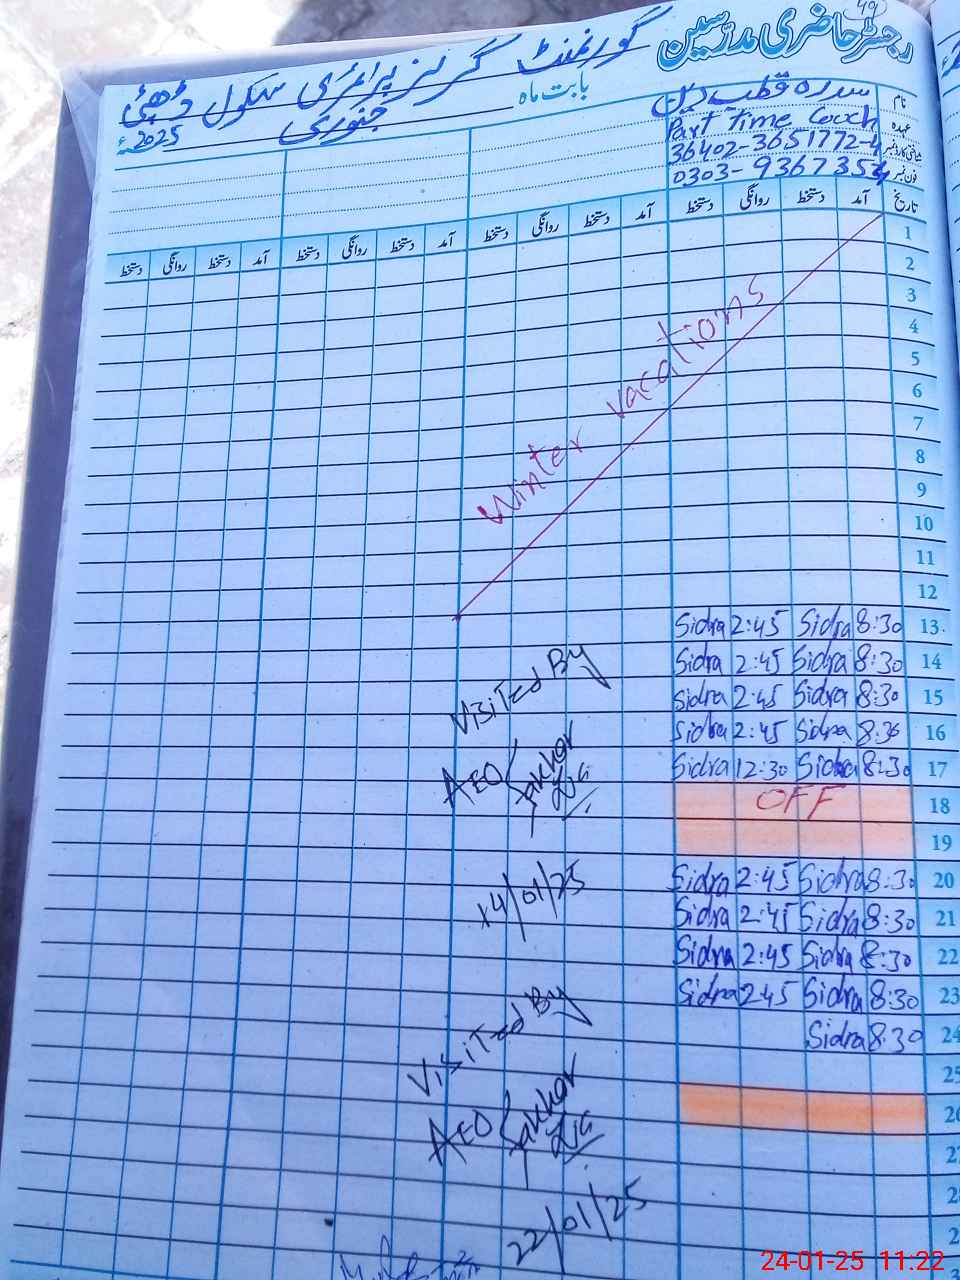 49
رجسٹر حاضری مدرسین
گورنمنٹ گرلز پرائمری سکول
بابت ماہ جنوری 2025ء
نام سدرہ قطب دین
عہدہ Part Time Coach
شناختی کارڈ نمبر 36402-3651772-4
فون نمبر 0303-9367354
تاریخ آمد دستخط روانگی دستخط آمد دستخط روانگی دستخط آمد دستخط روانگی دستخط آمد دستخط روانگی دستخط
1
2
3
4
5
6
7
8
9
10
11
12
Winter vacations
Sidra 2:45 Sidra 8:30 13
Sidra 2:45 Sidra 8:30 14
Sidra 2:45 Sidra 8:30 15
Sidra 2:45 Sidra 8:30 16
Sidra 12:30 Sidra 8:30 17
OFF 18
19
Sidra 2:45 Sidra 8:30 20
Sidra 2:45 Sidra 8:30 21
Sidra 2:45 Sidra 8:30 22
Sidra 2:45 Sidra 8:30 23
Sidra 8:30 24
25
26
27
Visited By
AEO
14/01/25
Visited By
AEO
22/01/25
24-01-25 11:22